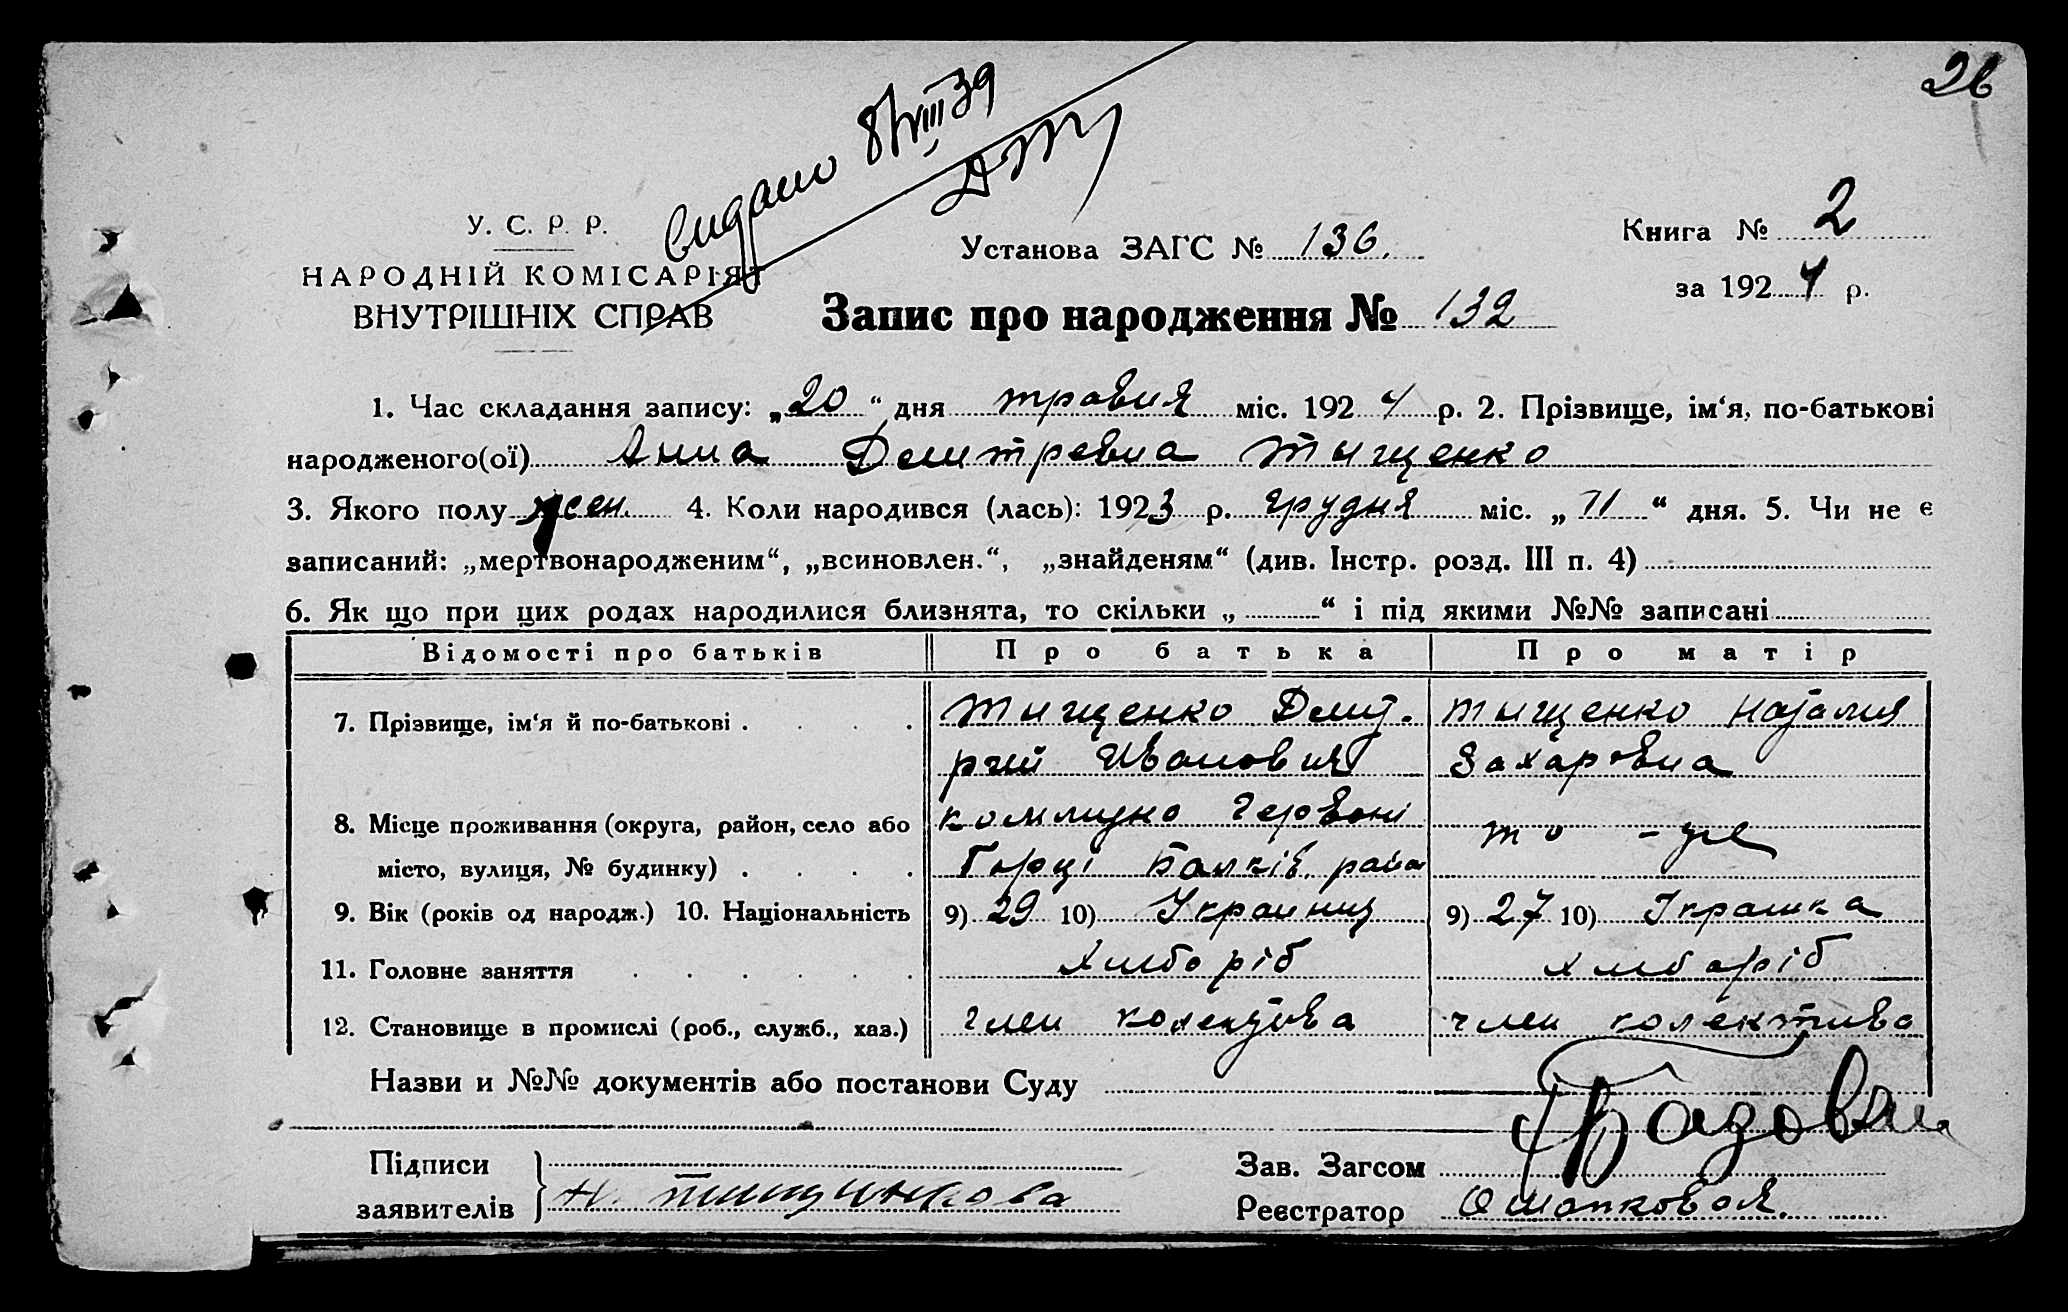 26
видано 8/VIII 39
У. С. Р. Р.
НАРОДНІЙ КОМІСАРІЯТ
ВНУТРІШНІХ СПРАВ
Установа ЗАГС № 136.
Книга № 2
за 1924 р.
Запис про народження № 132
1. Час складання запису: „20“ дня травня міс. 1924 р. 2. Прізвище, ім‘я, по-батькові
народженого(ої) Анна Демитревна Тыщенко
3. Якого полу жен. 4. Коли народився (лась): 1923 р. грудня міс. „11“ дня. 5. Чи не є
записаний: „мертвонародженим“, „всиновлен.“, „знайденям“ (див. Інстр. розд. III п. 4)
6. Як що при цих родах народилися близнята, то скільки „ “ і під якими №№ записані
Відомості про батьків Про батька Про матір
7. Прізвище, ім‘я й по-батькові . . . . Тыщенко Дмит. Тыщенко Наталия
рий Иванович Захаровна
8. Місце проживання (округа, район, село або коммуно Червоні то - же
місто, вулиця, № будинку) . . . . Борці Балків. район
9. Вік (років од народж.) 10. Національність 9) 29 10) Украинец 9) 27 10) Украинка
11. Головне заняття . . . . . . Хлібороб хлібороб
12. Становище в промислі (роб., служб., хаз.) член колектива член колектива
Назви и №№ документів або постанови Суду
Підписи
заявителів
Зав. Загсом
Реєстратор